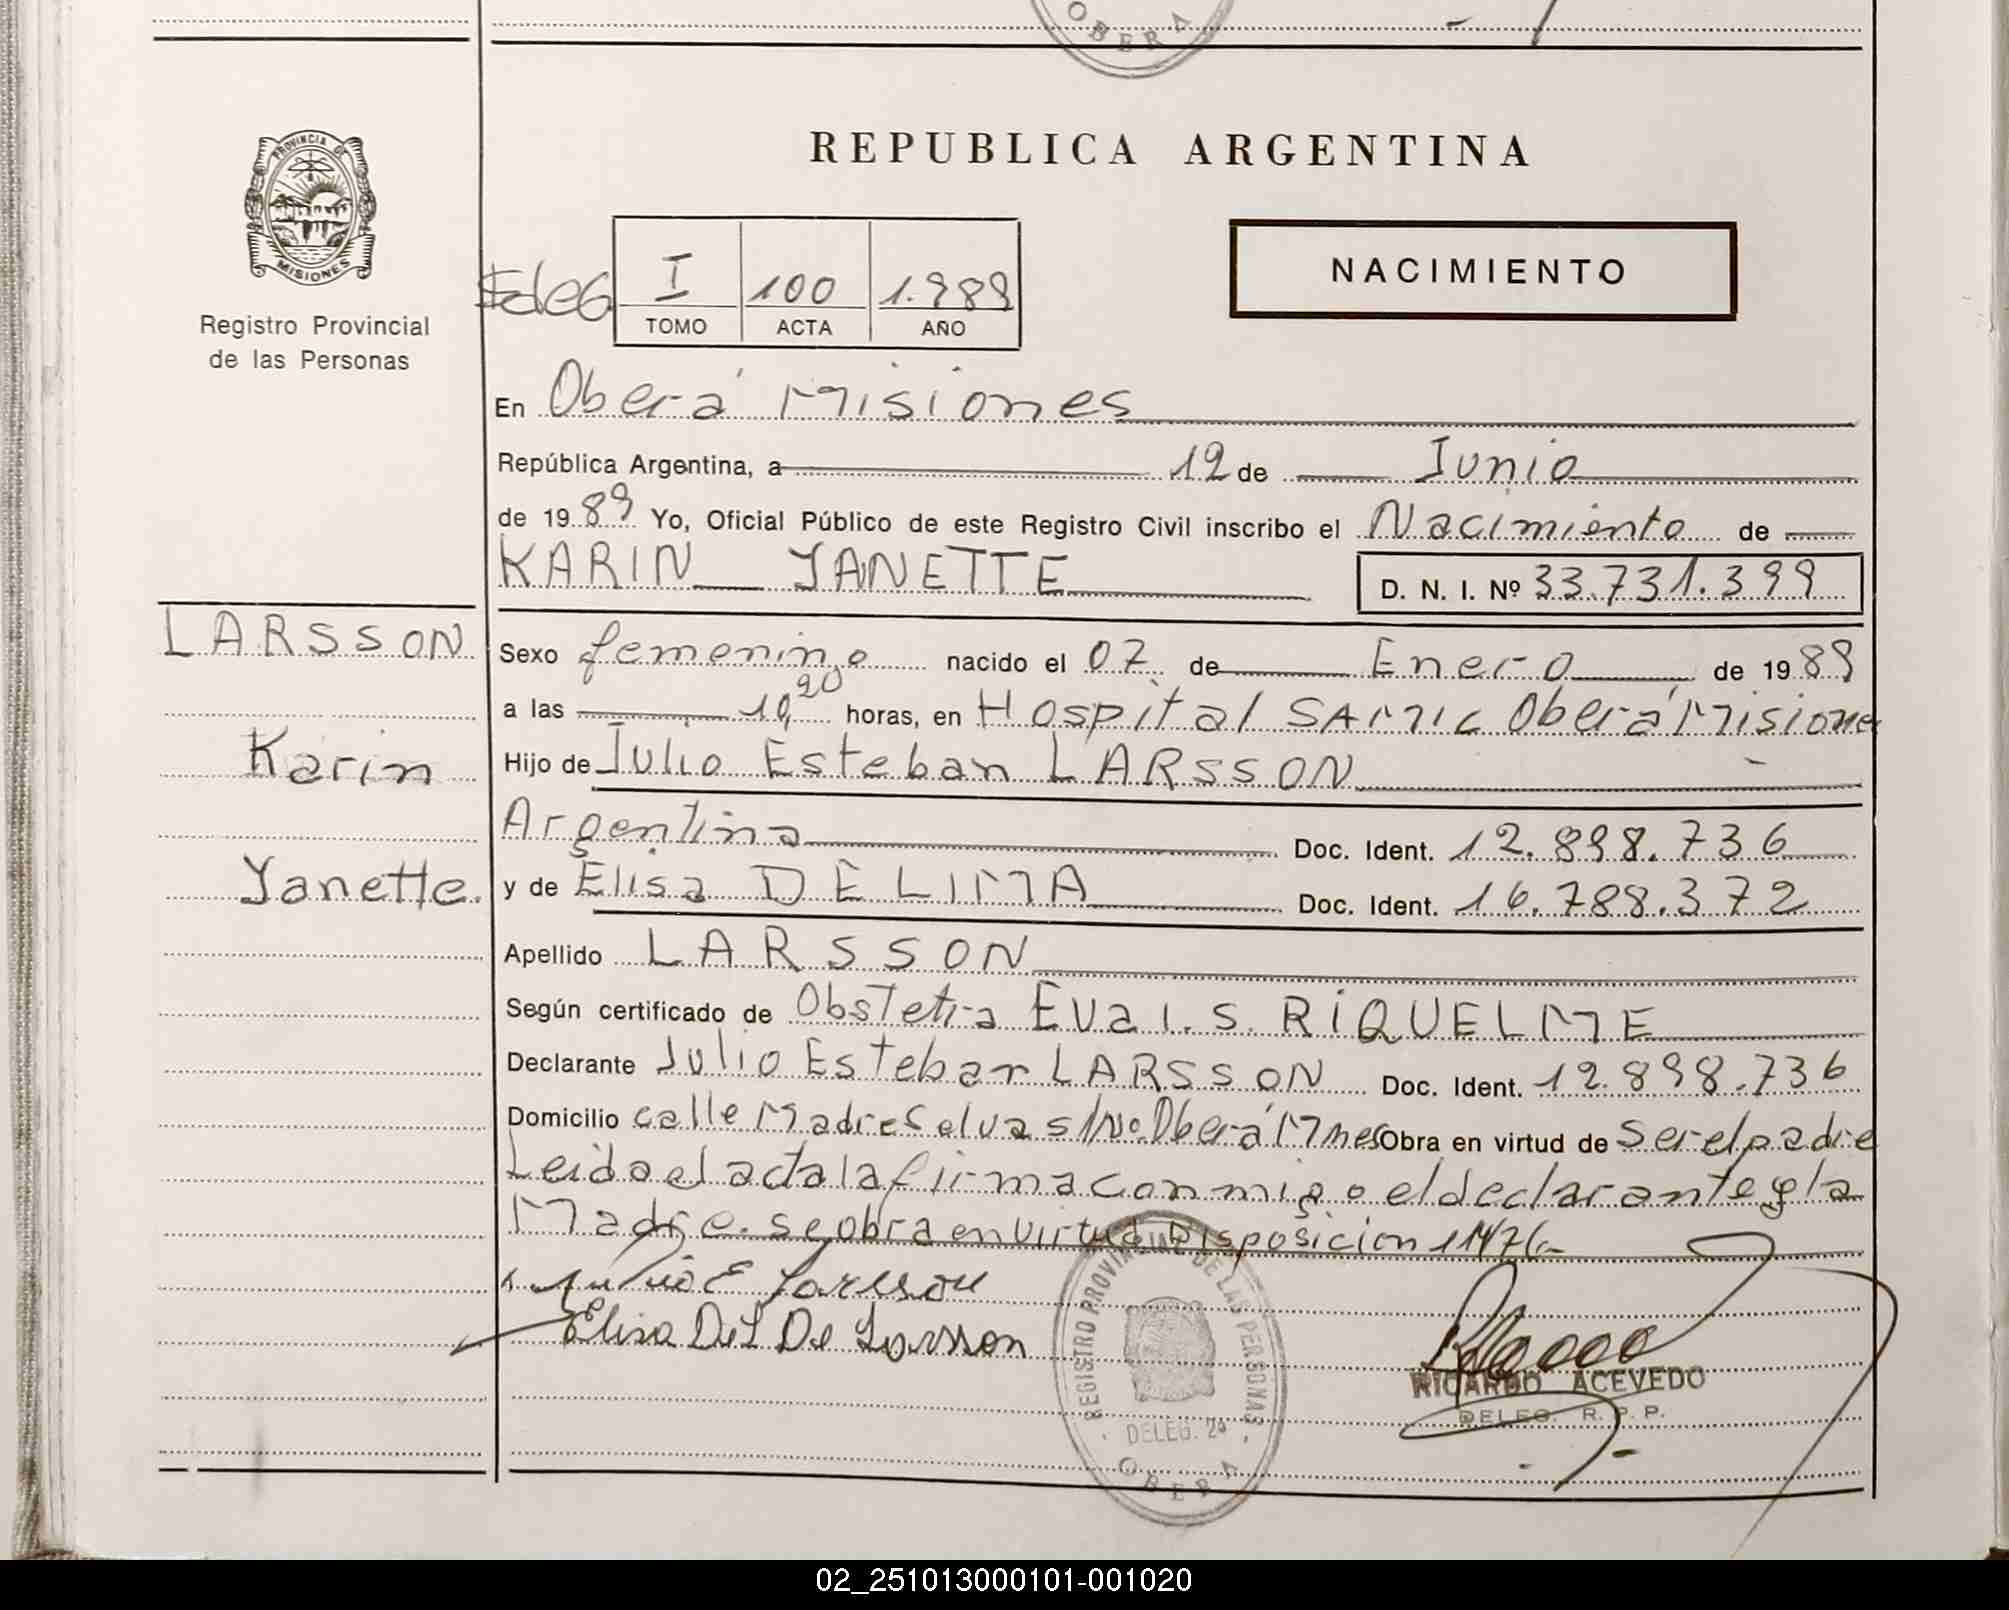 OBERA
PROVINCIA DE
MISIONES
Registro Provincial
de las Personas
REPUBLICA ARGENTINA
NACIMIENTO
I 100 1.989
TOMO ACTA AÑO
En Oberá Misiones
República Argentina, a 12 de Junio
de 1989 Yo, Oficial Público de este Registro Civil inscribo el Nacimiento de
KARIN YANETTE D. N. I. Nº 33.731.399
LARSSON
Karin
Yanette.
Sexo femenino nacido el 07 de Enero de 1989
a las 10,20 horas, en Hospital SAMIC Oberá Misiones
Hijo de Julio Esteban LARSSON
Argentina Doc. Ident. 12.898.736
y de Elisa DE LIMA Doc. Ident. 16.788.372
Apellido LARSSON
Según certificado de Obstetra Eva I. S. RIQUELME
Declarante Julio Esteban LARSSON Doc. Ident. 12.898.736
Domicilio calle Madre Selva s/Nº. Oberá Mnes Obra en virtud de Ser el padre
Leida el acta la firma conmigo el declarante y la
Madre. se obra en virtud Disposicion
Julio E Larsson
Elisa De L De Larsson
REGISTRO PROVINCIAL DE LAS PERSONAS
DELEG. 2ª
OBERA
RICARDO ACEVEDO
DELEG. R. P. P.
02_251013000101-001020